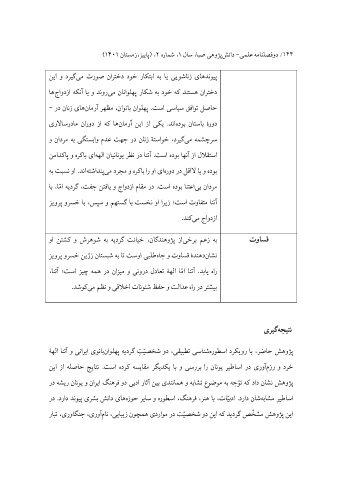 ۱۴۴/ دوفصلنامه علمی- دانش‌پژوهی صبا، سال ۱، شماره ۲، (پاییز، زمستان ۱۴۰۱)
پیوندهای زناشویی یا به ابتکار خود دختران صورت می‌گیرد و این
دختران هستند که خود به شکار پهلوانان می‌روند و یا آنکه ازدواج‌ها
حاصل توافق سیاسی است. پهلوان بانوان، مظهر آرمان‌های زنان در -
دورۀ باستان بوده‌اند. یکی از این آرمان‌ها که از دوران مادرسالاری
سرچشمه می‌گیرد، خواستۀ زنان در جهت عدم وابستگی به مردان و
استقلال از آنها بوده است. آتنا در نظر یونانیان الهه‌ای باکره و پاکدامن
بوده و یا لااقل در دوره‌ای او را باکره و مجرد می‌پنداشته‌اند. او نسبت به
مردان بی‌اعتنا بوده است. در مقام ازدواج و یافتن جفت، گردیه امّا، با
آتنا متفاوت است؛ زیرا او نخست با گستهم و سپس، با خسرو پرویز
ازدواج می‌کند.
قساوت
به زعم برخی‌از پژوهندگان، خیانت گردیه به شوهرش و کشتن او
نشان‌دهندۀ قساوت و جاه‌طلبی اوست تا به شبستان زرّین خسرو پرویز
راه یابد. آتنا امّا الهۀ تعادل درونی و میزان در همه چیز است؛ آتنا،
بیشتر در راه عدالت و حفظ شئونات اخلاقی و نظم می‌کوشد.
نتیجه‌گیری
پژوهش حاضر، با رویکرد اسطوره‌شناسی تطبیقی، دو شخصیّت گردیه پهلوان‌بانوی ایرانی و آتنا الهۀ
خرد و رزم‌آوری در اساطیر یونان را بررسی و با یکدیگر مقایسه کرده است. نتایج حاصله از این
پژوهش نشان داد که توّجه به موضوع تشابه و همانندی بین آثار ادبی دو فرهنگ ایران و یونان ریشه در
اساطیر مشابه‌شان دارد. ادبیّات، با هنر، فرهنگ، اسطوره و سایر حوزه‌های دانش بشری پیوند دارد. در
این پژوهش مشخّص گردید که این دو شخصیّت در مواردی همچون زیبایی، نام‌آوری، جنگاوری، تبار